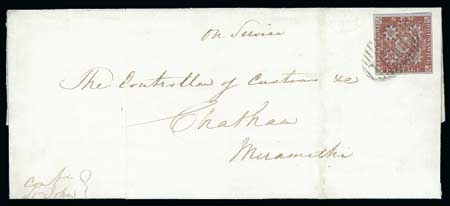 On Service
The Controller of Customs &c
Chatham
Miramichi
St John